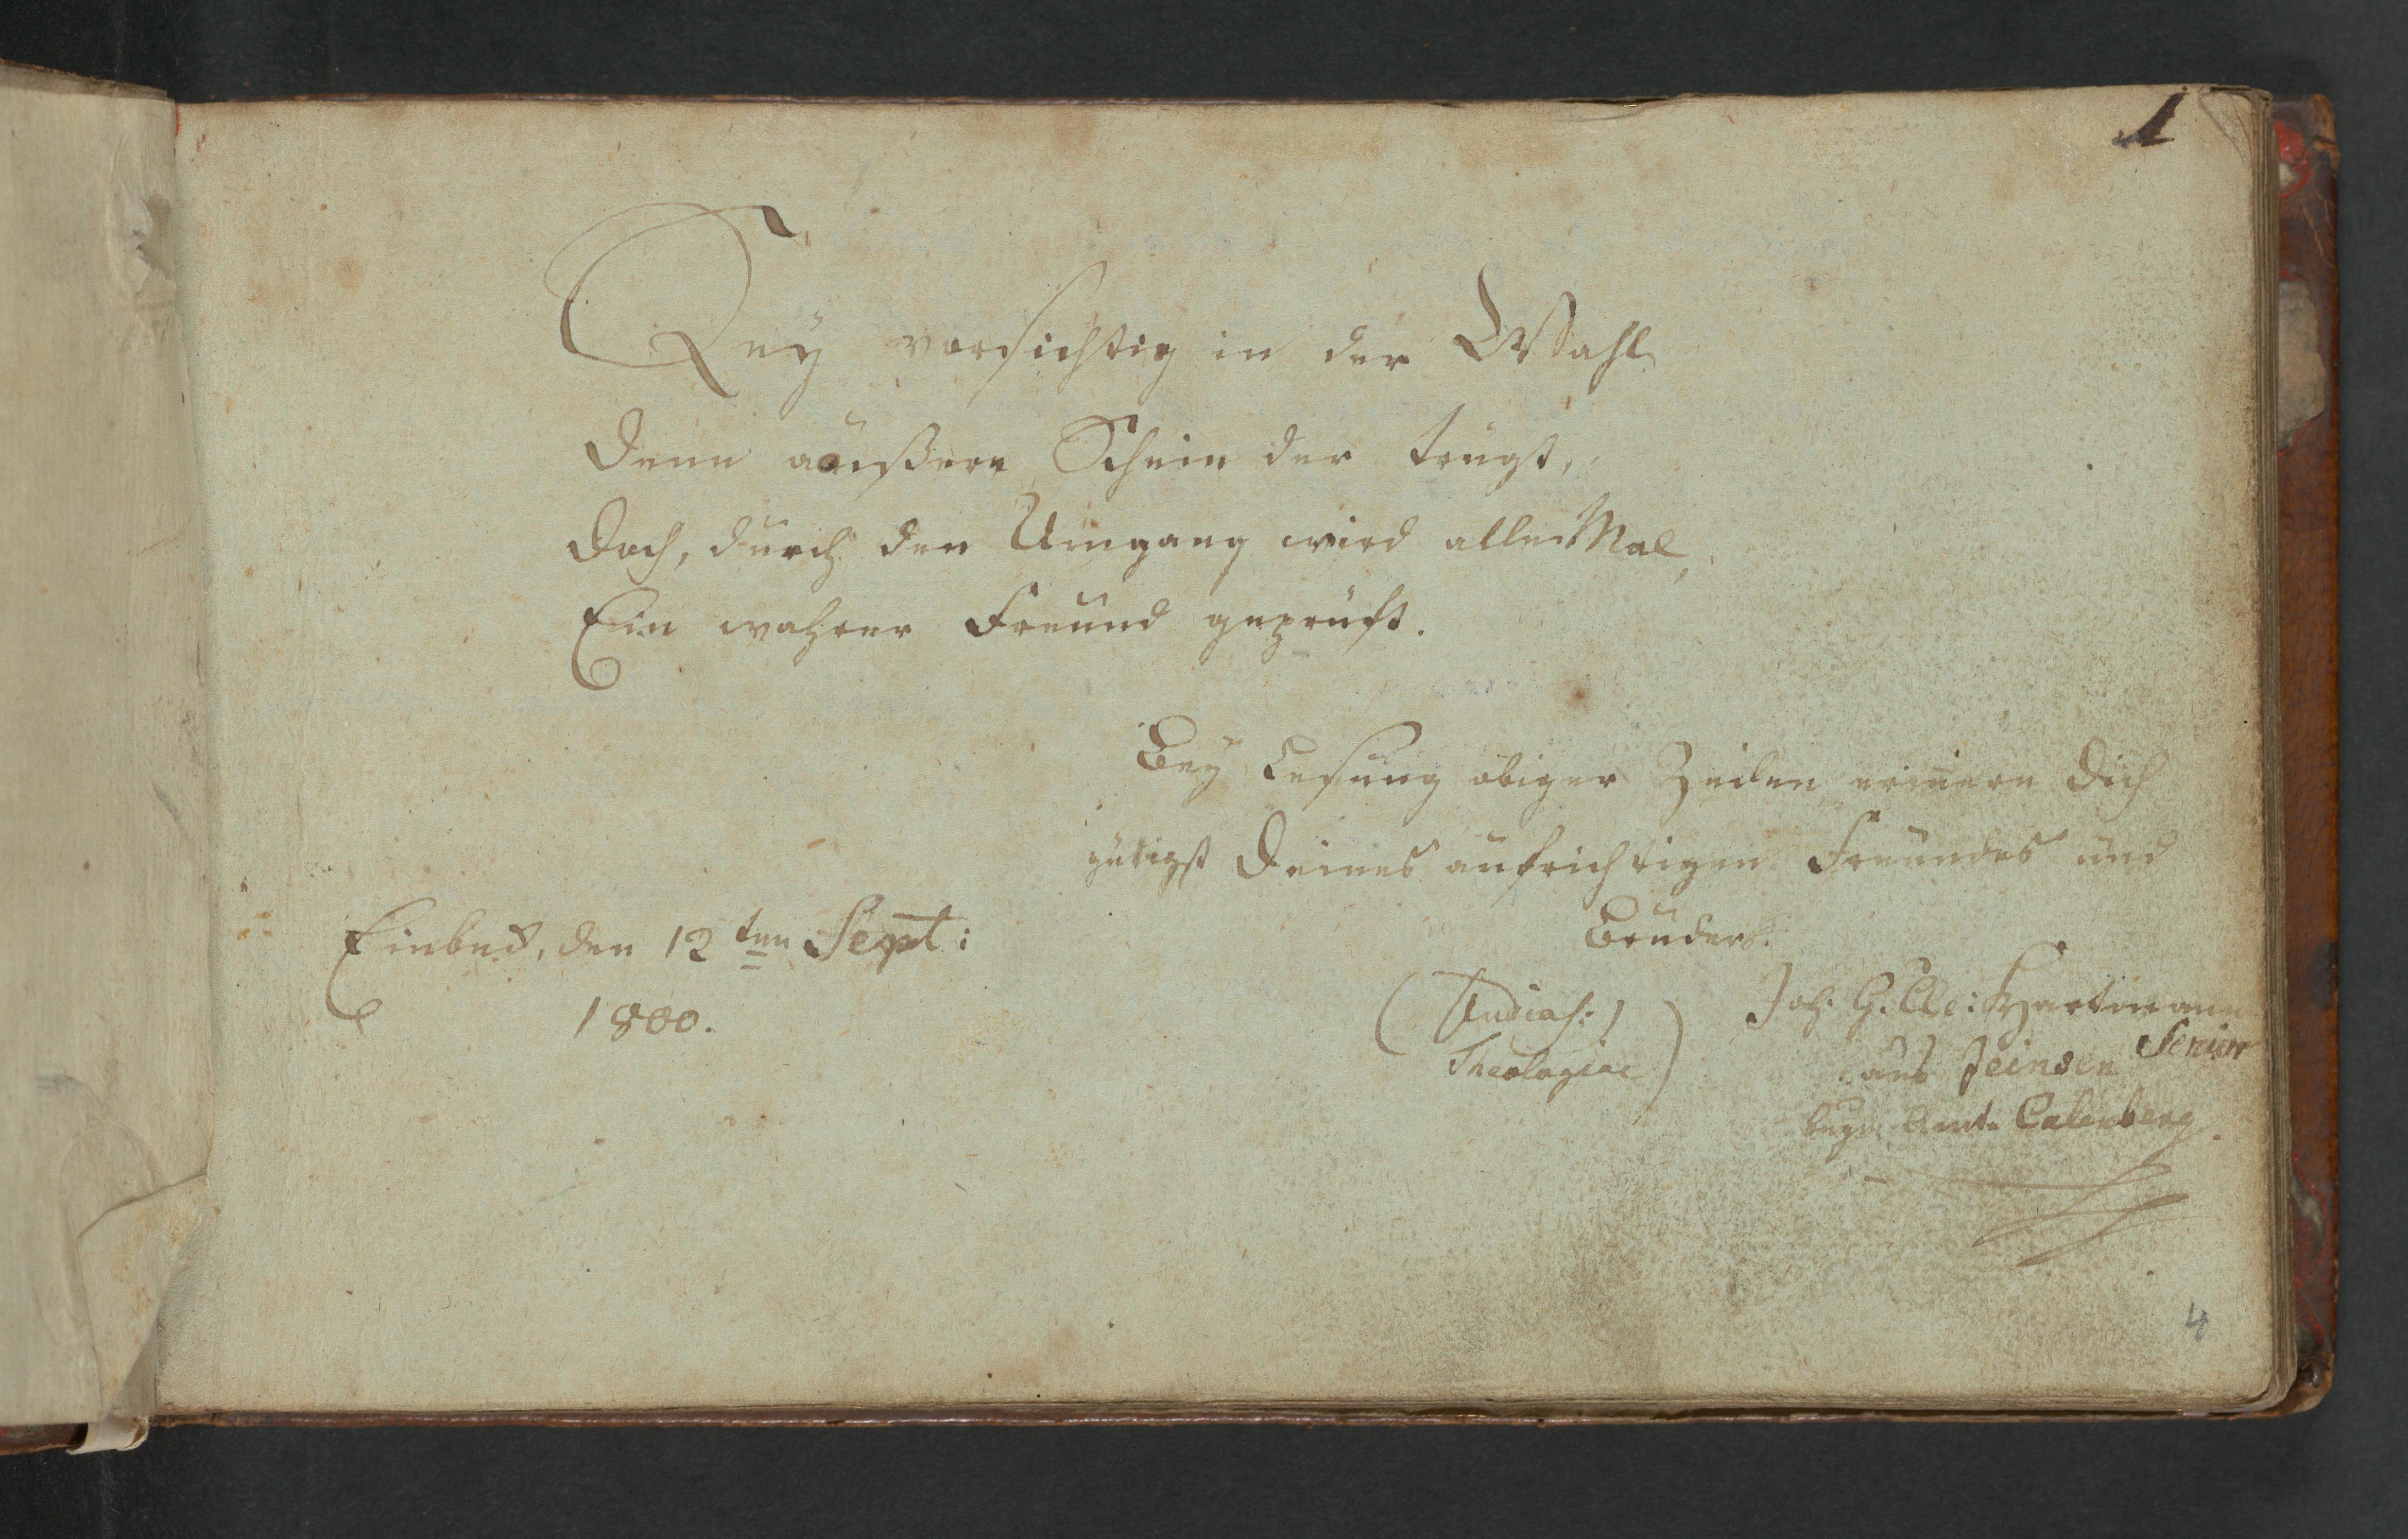 1
Sey vorsichtig in der Wahl
Denn äußerer Schein der trügt,
Doch, durch den Umgang wird alle Mal,
Ein wahrer Freund geprüft.
Bey Lesung obiger Zeilen erinere Dich
gütigst Deines aufrichtigen Freundes und
Bruders.
Einbeck, den 12ten Sept:
1800.
Joh. G. Hartmann
Senior
Theologiae)
aus Jeinsen
Amte Calenberg.
4